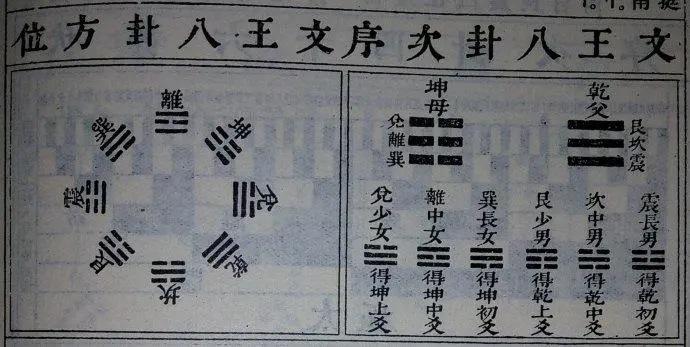 文王八卦次序
文王八卦方位
乾父
艮坎震
坤母
兌離巽
震長男
得乾初爻
坎中男
得乾中爻
艮少男
得乾上爻
巽長女
得坤初爻
離中女
得坤中爻
兌少女
得坤上爻
離
坤
兌
乾
坎
艮
震
巽